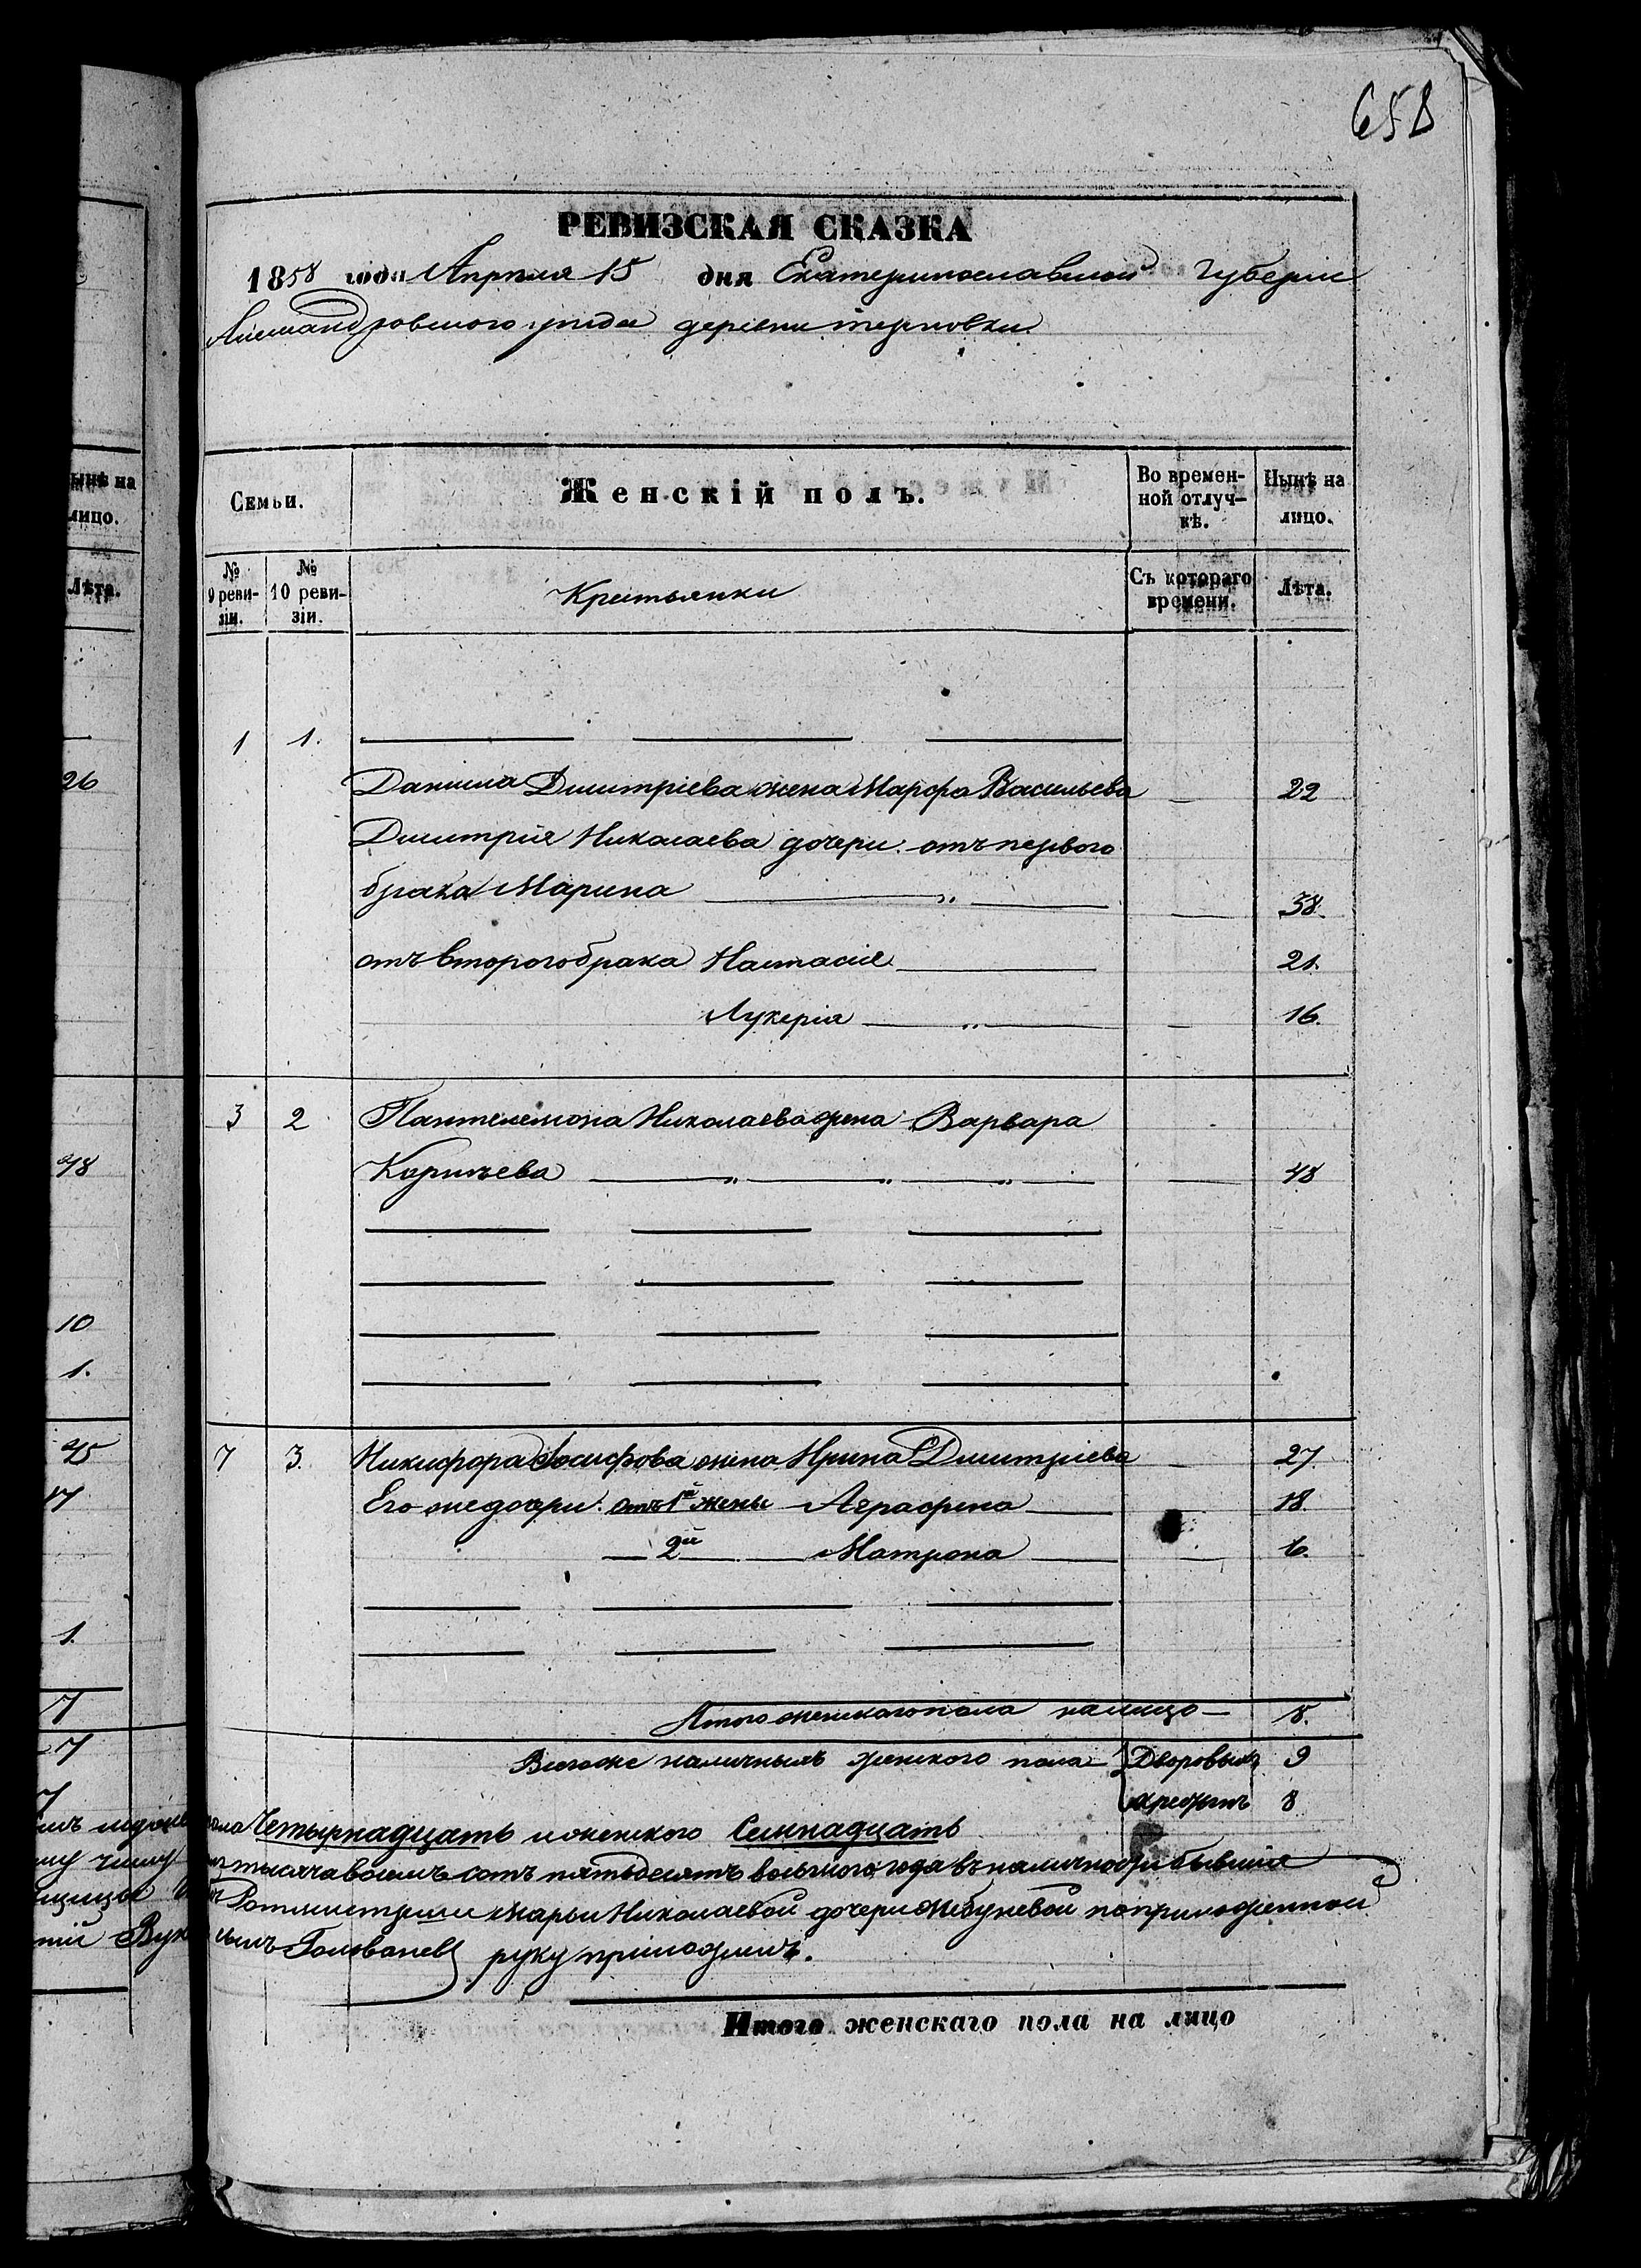 658
РЕВИЗСКАЯ СКАЗКА
1858 года Апреля 15 дня Екатеринославской Губерніи
Александровского уезда деревни терновки
Семьи.
Женскій полъ.
Во времен-
ной отлуч-
кѣ.
Нынѣ на
лицо.
№
9 реви-
зіи.
№
10 реви-
зіи.
Крестьянки
Съ котораго
времени.
Лѣта.
1 1.
Данила Дмитріева жена Марфа Васильева 22
Дмитрія Николаева дочери отъ первого
брака Марина 38.
отъ второго брака Настасія 21.
Лукерія 16.
3 2 Пантелемона Николаева жена Варвара
Корнѣева 48
7 3. Никифора Іосифова жена Ирина Дмитріева 27
Его же дочери отъ 1й жены Аграфена 18.
2й Матрона 6.
Итого женскаго пола налицо 8.
Всего же наличныхъ женского пола Дворовыхъ 9
крестьянъ 8
пола Четырнадцать и женского Семнадцать
тысяча восемь сотъ пятьдесятъ восьмого года въ наличности бывшія
Ротмистрши Марьи Николаевой дочери поприложенной
сынъ Голованевъ руку приложилъ.
Итого женскаго пола на лицо
ынѣ на
лицо.
Лѣта.
26
48
10
1.
45
17
1.
7
7